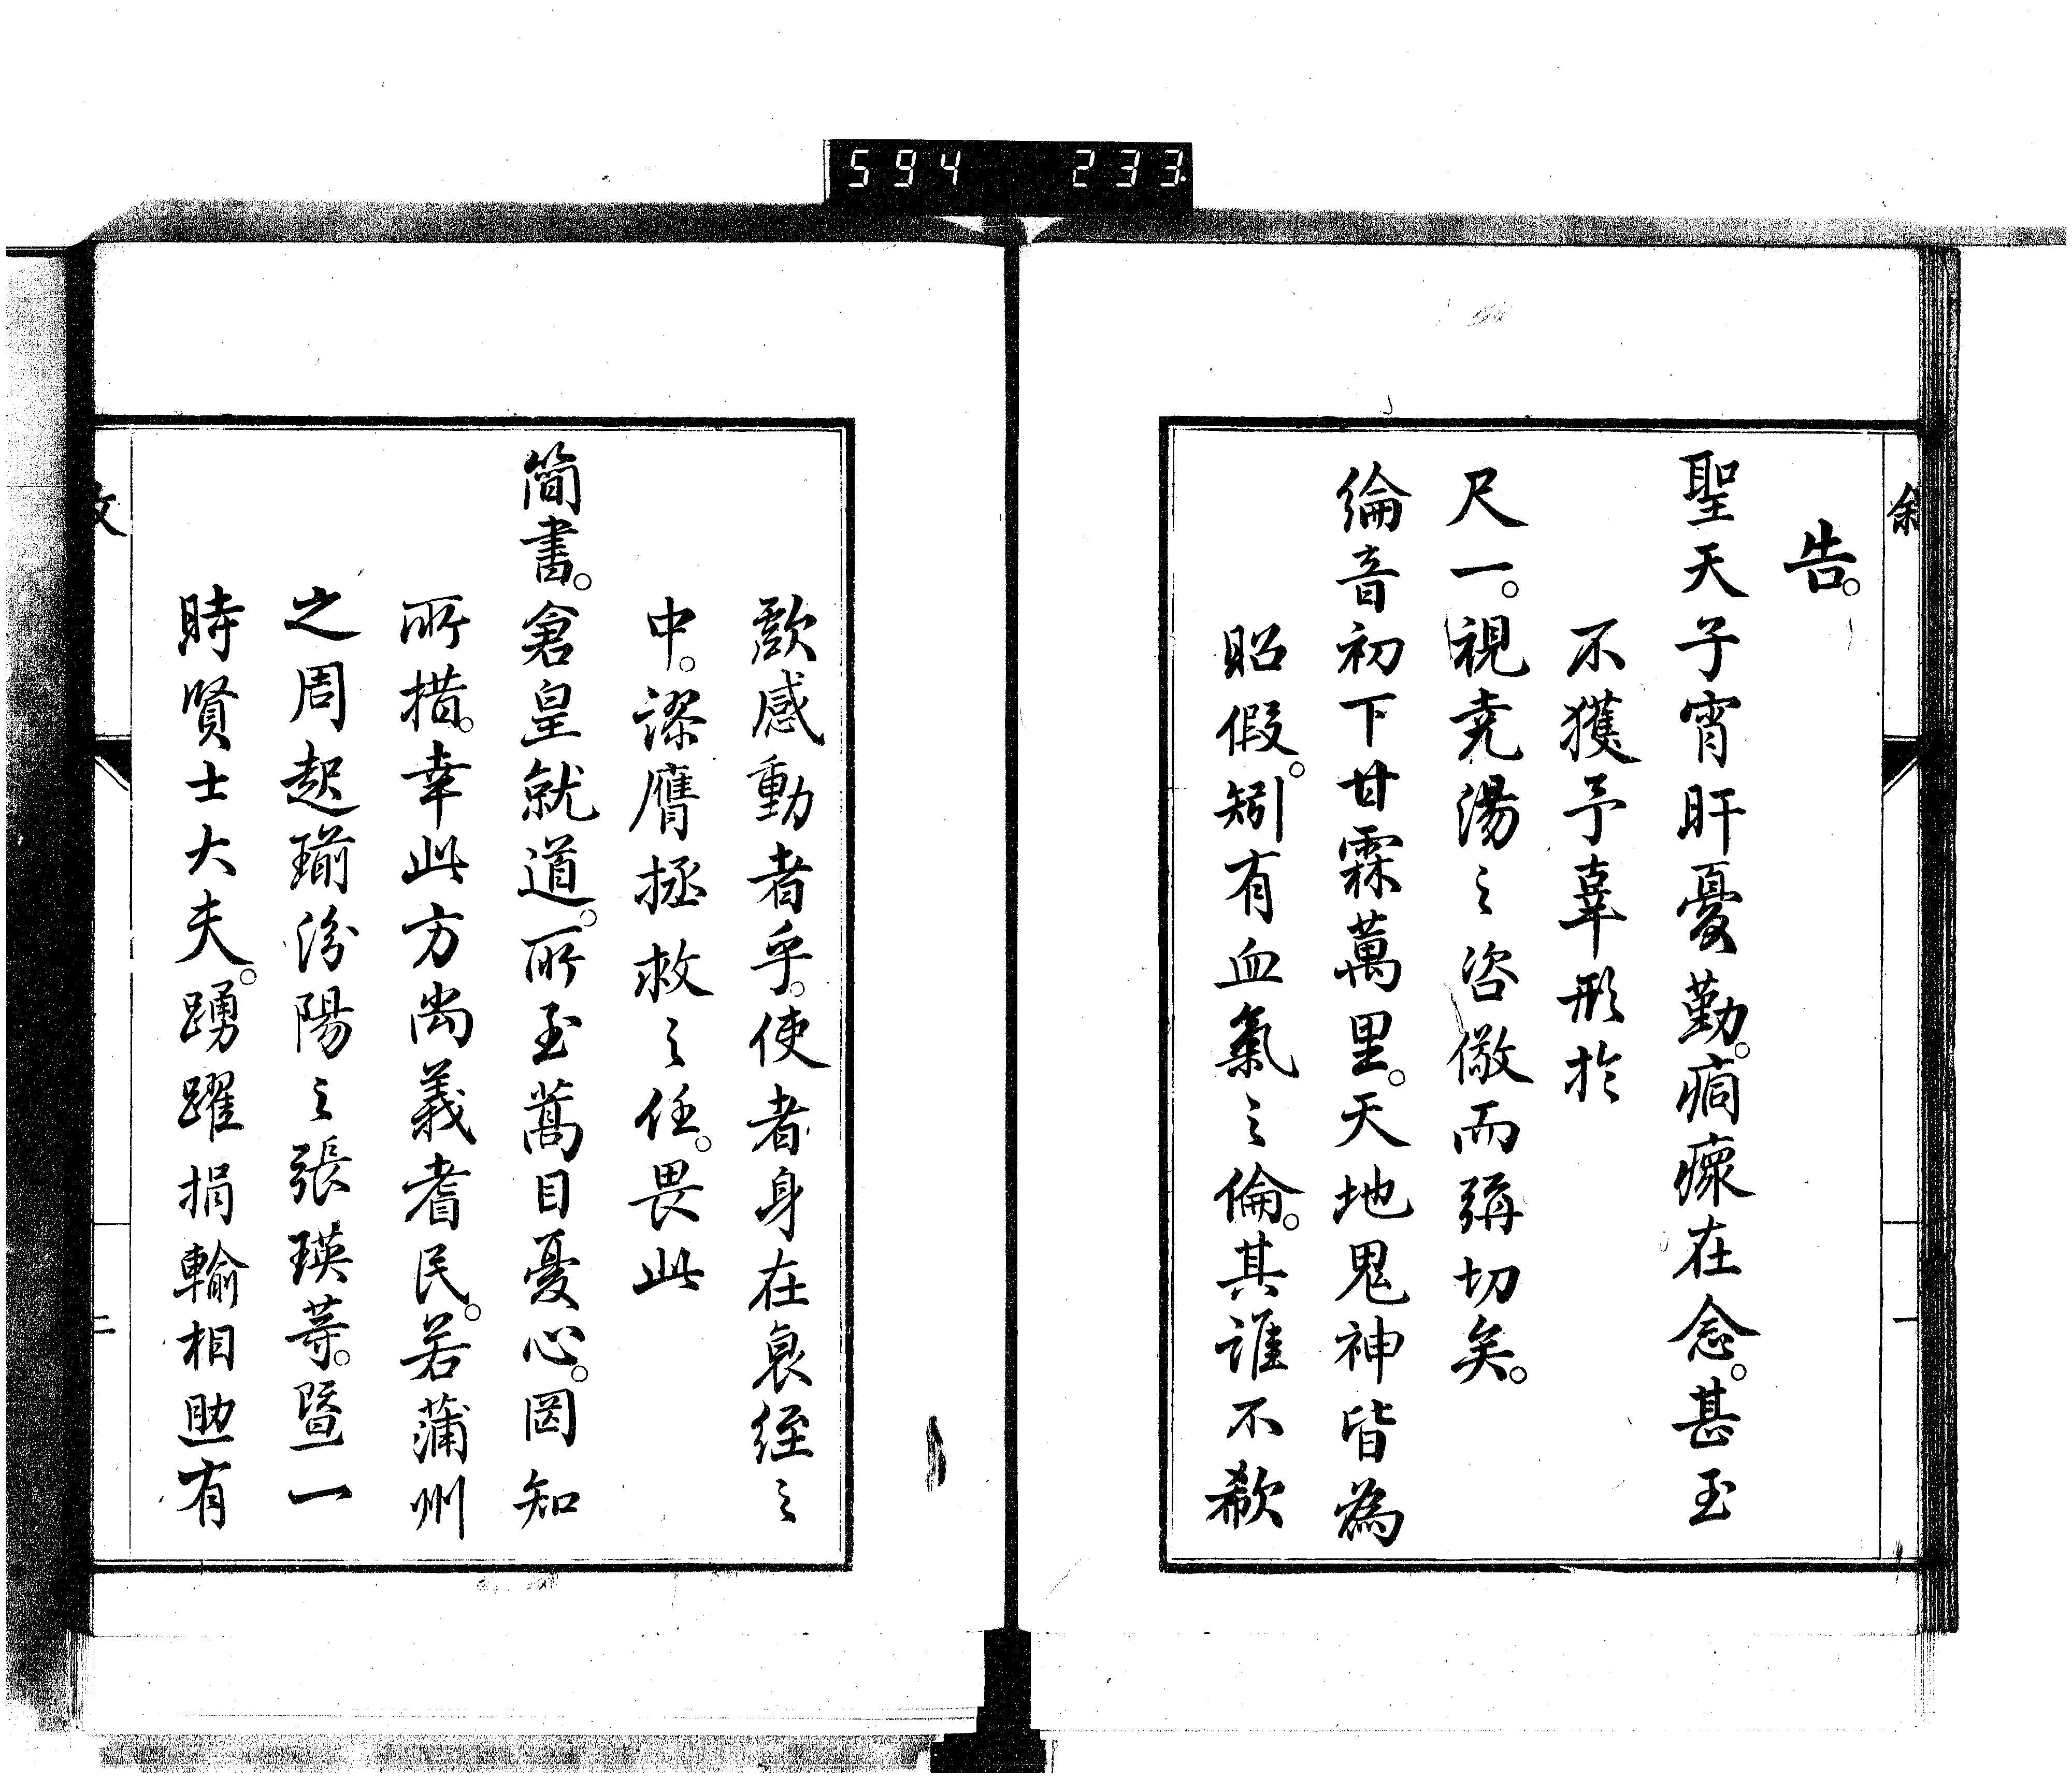 594 233
敘
告。
聖天子宵旰憂勤。痌瘝在念。甚至
不獲予辜形於
尺一。視堯湯之咨儆而彌切矣。
綸音初下甘霖萬里。天地鬼神皆為
昭假。矧有血氣之倫。其誰不欷
一
歔感動者乎。使者身在衰絰之
中。謬膺拯救之任。畏此
簡書。倉皇就道。所至蒿目憂心。罔知
所措。幸此方尚義耆民。若蒲州
之周起瑞汾陽之張瑛等。暨一
時賢士大夫。踴躍捐輸相助有
二